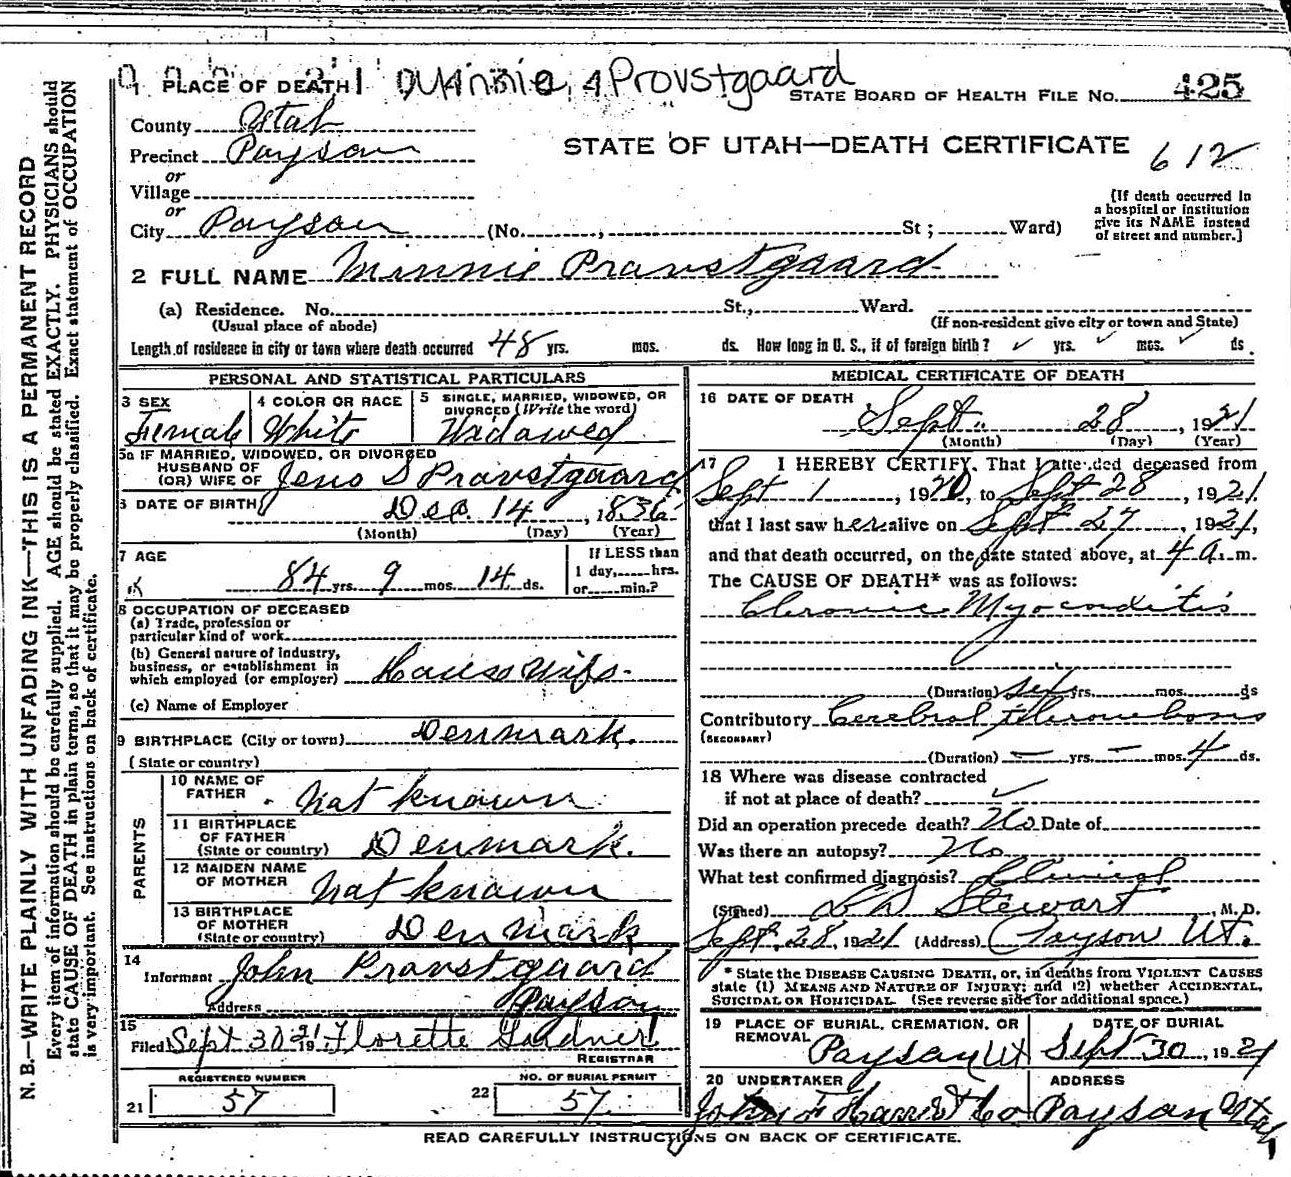 PLACE OF DEATH Minnie Provstgaard
STATE BOARD OF HEALTH FILE No. 425
County Utah
STATE OF UTAH—DEATH CERTIFICATE 612
Precinct Payson
or
Village
or
City Payson (No. , St ; Ward)
[If death occurred in
a hospital or institution
give its NAME instead
of street and number.]
2 FULL NAME Minnie Provstgaard
(a) Residence. No. St., Ward.
(Usual place of abode) (If non-resident give city or town and State)
Length of residence in city or town where death occurred 48 yrs. mos. ds. How long in U. S., if of foreign birth? ✓ yrs. ✓ mos. ✓ ds.
PERSONAL AND STATISTICAL PARTICULARS
3 SEX 4 COLOR OR RACE 5 SINGLE, MARRIED, WIDOWED, OR
DIVORCED (Write the word)
Female White Widowed
5a IF MARRIED, WIDOWED, OR DIVORCED
HUSBAND OF
(OR) WIFE OF Jens S Provstgaard
6 DATE OF BIRTH Dec. 14, 1836
(Month) (Day) (Year)
7 AGE If LESS than
84 yrs. 9 mos. 14 ds. 1 day, hrs.
or min.?
8 OCCUPATION OF DECEASED
(a) Trade, profession or
particular kind of work
(b) General nature of industry,
business, or establishment in
which employed (or employer) House Wife
(c) Name of Employer
9 BIRTHPLACE (City or town) Denmark.
(State or country)
PARENTS
10 NAME OF
FATHER Not known
11 BIRTHPLACE
OF FATHER
(State or country) Denmark.
12 MAIDEN NAME
OF MOTHER Not known
13 BIRTHPLACE
OF MOTHER
(State or country) Denmark
14
Informant John Provstgaard
Address Payson
15
Filed Sept 30 1921 Florette Gardner
REGISTRAR
REGISTERED NUMBER NO. OF BURIAL PERMIT
21 57 22 57
MEDICAL CERTIFICATE OF DEATH
16 DATE OF DEATH
Sept. 28, 1921
(Month) (Day) (Year)
17 I HEREBY CERTIFY, That I attended deceased from
Sept 1, 1920, to Sept 28, 1921.
that I last saw her alive on Sept 27, 1921,
and that death occurred, on the date stated above, at 4 a. m.
The CAUSE OF DEATH* was as follows:
Chronic Myocarditis
(Duration) yrs. mos. ds
Contributory Cerebral thrombosis
(SECONDARY)
(Duration) — yrs. — mos. 4 ds.
18 Where was disease contracted
if not at place of death? ✓
Did an operation precede death? No Date of
Was there an autopsy? No
What test confirmed diagnosis? Clinical
(Signed) Stewart, M. D.
Sept. 28, 1921 (Address) Payson Ut.
* State the DISEASE CAUSING DEATH, or, in deaths from VIOLENT CAUSES
state (1) MEANS AND NATURE OF INJURY; and (2) whether ACCIDENTAL,
SUICIDAL OR HOMICIDAL. (See reverse side for additional space.)
19 PLACE OF BURIAL, CREMATION, OR
REMOVAL DATE OF BURIAL
Payson Ut Sept 30, 1921
20 UNDERTAKER ADDRESS
John F Co Payson Utah
READ CAREFULLY INSTRUCTIONS ON BACK OF CERTIFICATE.
N. B.—WRITE PLAINLY WITH UNFADING INK—THIS IS A PERMANENT RECORD
Every item of information should be carefully supplied. AGE should be stated EXACTLY. PHYSICIANS should
state CAUSE OF DEATH in plain terms, so that it may be properly classified. Exact statement of OCCUPATION
is very important. See instructions on back of certificate.